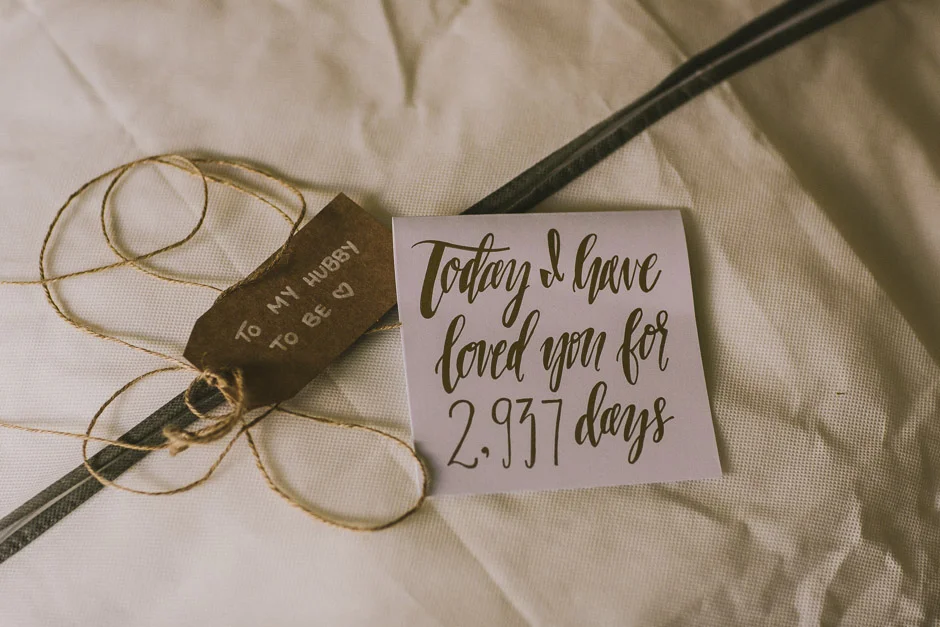 TO MY HUBBY
TO BE ♡
Today I have
loved you for
2,937 days